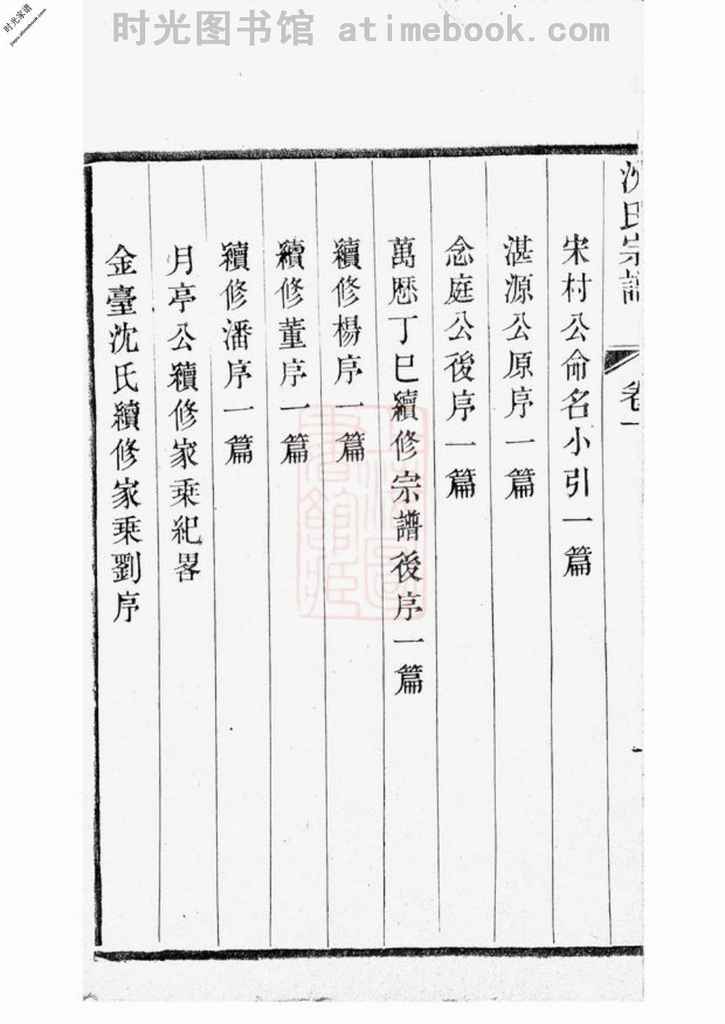 时光图书馆 atimebook.com
时光家谱
沈氏宗譜 卷一
宋村公命名小引一篇
湛源公原序一篇
念庭公後序一篇
萬厯丁巳續修宗譜後序一篇
續修楊序一篇
續修董序一篇
續修潘序一篇
月亭公續修家乘紀畧
金臺沈氏續修家乘劉序